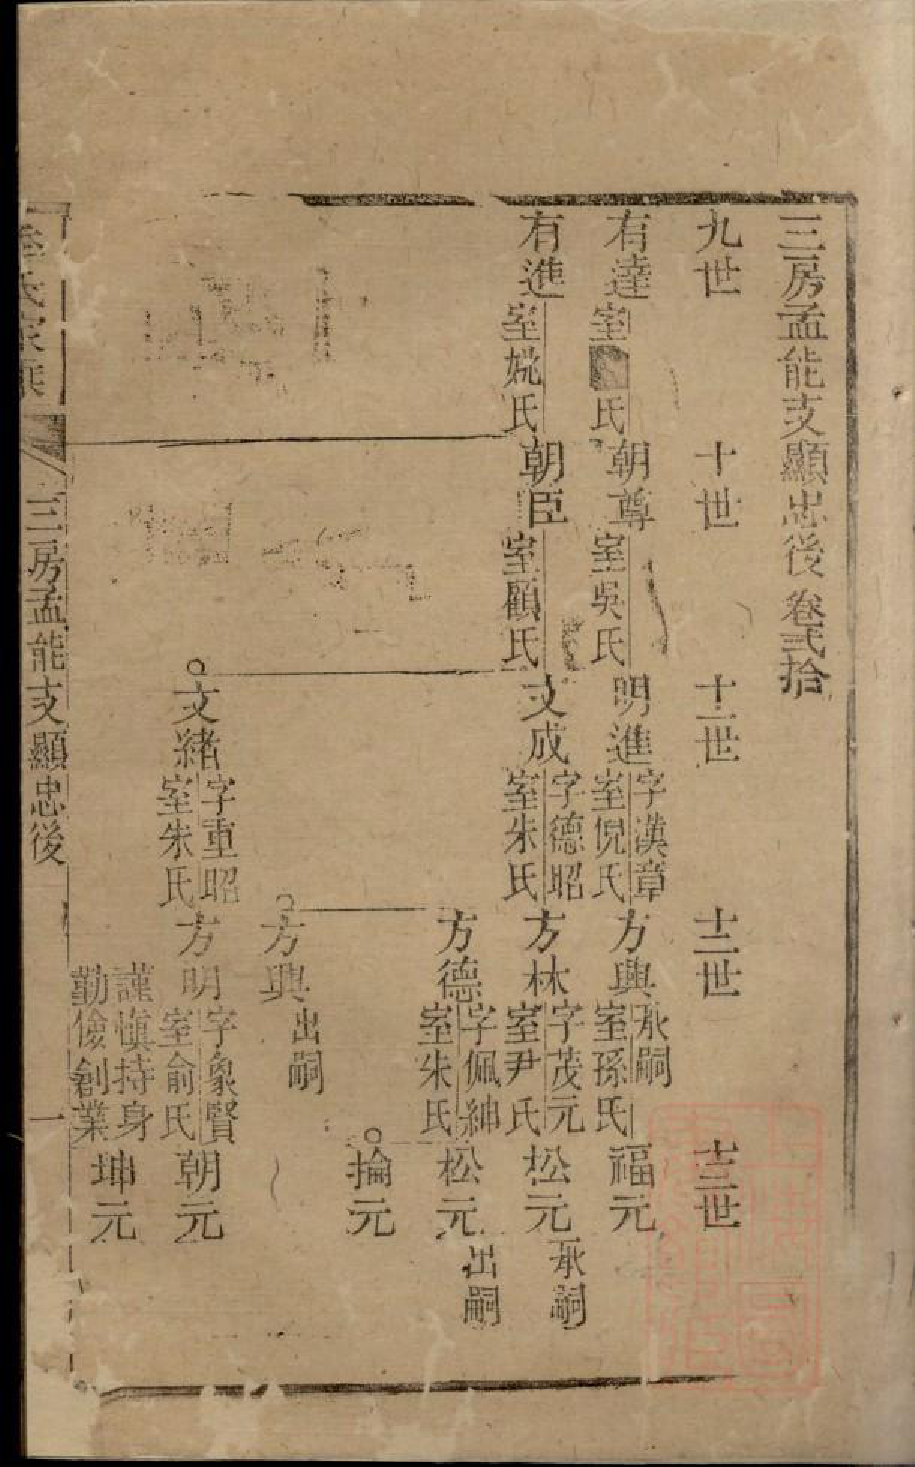 三房孟能支顯忠後 卷弍拾
九世 十世 十一世 十二世 十三世
有達 室 氏 朝尊 室吳氏 明進 字漢章 室倪氏 方興 承嗣 室孫氏 福元
有進 室姚氏 朝臣 室顧氏 文成 字德昭 室朱氏 方林 字茂元 室尹氏 松元 承嗣
方德 字佩紳 室朱氏 松元 出嗣
掄元
方興 出嗣
文緒 字重昭 室朱氏 方明 字象賢 室俞氏 朝元
謹慎持身 勤儉創業 坤元
氏家 三房孟能支顯忠後 一